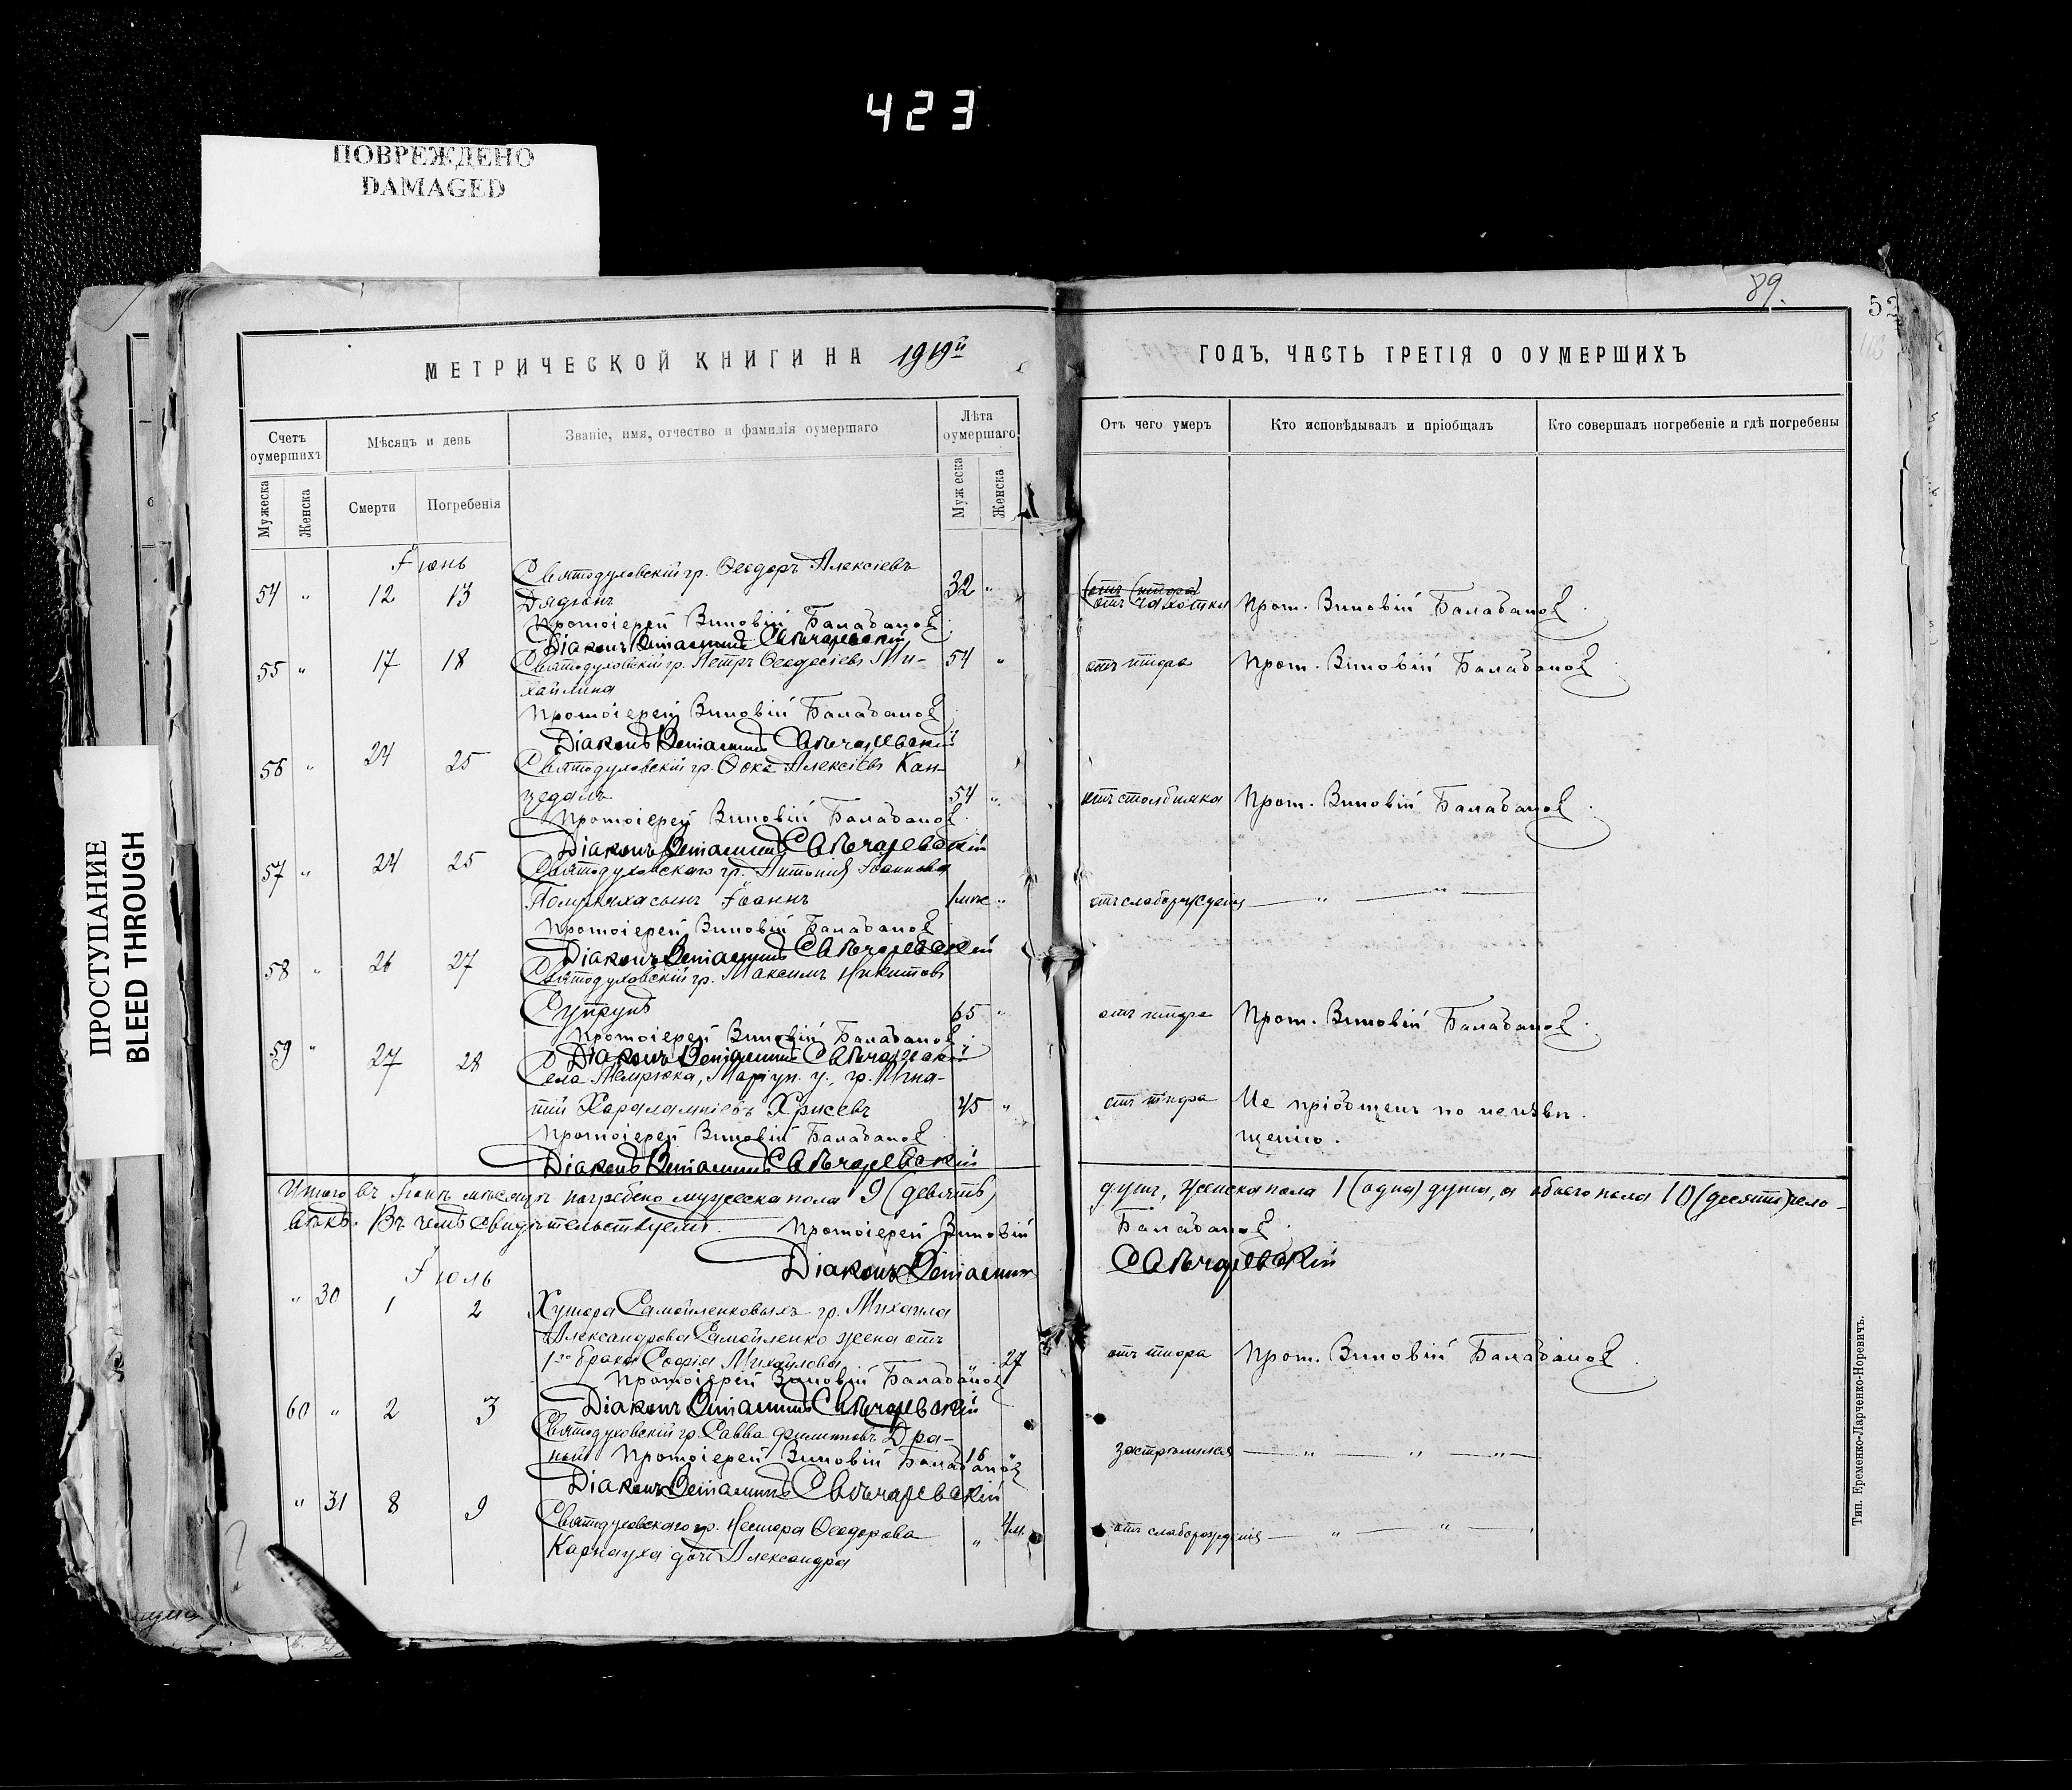 423
ПОВРЕЖДЕНО
DAMAGED
ПРОСТУПАНИЕ
BLEED THROUGH
89.
52
МЕТРИЧЕСКОЙ КНИГИ НА 1919й
ГОДЪ, ЧАСТЬ ТРЕТІЯ О ОУМЕРШИХЪ
Счетъ оумершихъ
Мѣсяцъ и день
Званіе, имя, отчество и фамилія оумершаго
Лѣта оумершаго
Отъ чего умеръ
Кто исповѣдывалъ и пріобщалъ
Кто совершалъ погребеніе и гдѣ погребены
Мужеска
Женска
Смерти
Погребенія
Мужеска
Женска
Іюнь
Святодуховскій гр. Ѳеодоръ Алексіевъ
54 " 12 13 32 "
Протоіерей Зиновій Балабановъ
отъ чахотки Прот. Зиновій Балабановъ
Діаконъ Веніаминъ
55 " 17 18 Святодуховскій гр. Петръ Ѳеодосіевъ Ми- 54 " отъ тифа Прот. Зиновій Балабановъ
хайлика
Протоіерей Зиновій Балабановъ
Діаконъ Веніаминъ
56 " 24 25 Святодуховскій гр. Ѳока Алексіевъ Кан-
цедалъ 54 " отъ столбняка Прот. Зиновій Балабановъ
Протоіерей Зиновій Балабановъ
Діаконъ Веніаминъ
57 " 24 25 Святодуховскаго гр. Антонія Іоаннова
сынъ Іоаннъ " отъ слаборожденія — " — " —
Протоіерей Зиновій Балабановъ
Діаконъ Веніаминъ
58 " 26 27 Святодуховскій гр. Максимъ Никитовъ
Супрунъ 65 " отъ тифа Прот. Зиновій Балабановъ
Протоіерей Зиновій Балабановъ
Діаконъ Веніаминъ
59 " 27 28 Села Маріуп. у., гр. Игна-
тій Харалампіевъ Хрисевъ 45 " отъ тифа Не пріобщенъ по неизвѣ-
щенію.
Протоіерей Зиновій Балабановъ
Діаконъ Веніаминъ
Итого въ Іюнѣ мѣсяцѣ погребено мужеска пола 9 (девять) душъ, женска пола 1 (одна) душа, а обоего пола 10 (десять) чело-
вѣкъ. Въ чемъ свидѣтельствуемъ. Протоіерей Зиновій Балабановъ
Діаконъ Веніаминъ
Іюль
" 30 1 2 Хутора Самойленковыхъ гр. Михаила
Александрова Самойленко жена отъ
1го брака Софія Михайлова " 27 отъ тифа Прот. Зиновій Балабановъ
Протоіерей Зиновій Балабановъ
Діаконъ Веніаминъ
60 " 2 3 Святодуховскій гр. Савва Филипповъ Дра-
Протоіерей Зиновій Балабановъ 16 " застрѣлился — " — " — " —
Діаконъ Веніаминъ
" 31 8 9 Святодуховскаго гр. Нестора Ѳеодорова " 4 м. отъ слаборожденія — " — " —
Карнауха дочь Александра
Тип. Еременко-Ларченко-Норевичъ.